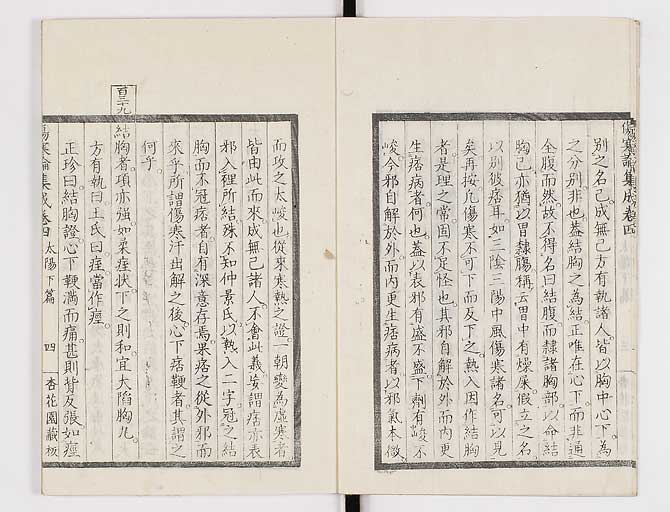 傷寒論集成卷四
別之名已。成無已方有執諸人。皆以胸中心下為
之分別。非也。蓋結胸之為結。正唯在心下。而非通
全腹而然。故不得名曰結腹。而隸諸胸部。以命結
胸已。亦猶以胃隸腸。稱云胃中有燥屎。假立之名。
以別彼痞耳。如三陰三陽中風傷寒諸名。可以見
矣。再按凡傷寒不可下。而反下之。熱入因作結胸
者。是理之常。固不足怪也。其邪自解於外。而內更
生痞病者何也。蓋以表邪有盛不盛。下劑有峻不
峻。今邪自解於外。而內更生痞病者。以邪氣本微。
而攻之太峻也。從來寒熱之證。一朝變為虛寒者。
皆由此而來。成無已諸人。不會此義。妄謂痞亦表
邪入裡所結。殊不知仲景氏。以熱入二字。冠之結
胸。而不冠痞者。自有深意存焉。果痞之從外邪而
來乎。所謂傷寒汗出解之後。心下痞鞕者。其謂之
何乎。
百三十九
結胸者。項亦強。如柔痓狀。下之則和。宜大陷胸丸。
方有執曰。王氏曰。痓當作痙。
正珍曰。結胸證。心下鞕滿而痛。甚則背反張如痙
傷寒論集成卷四 太陽下篇 四 杏花園藏板